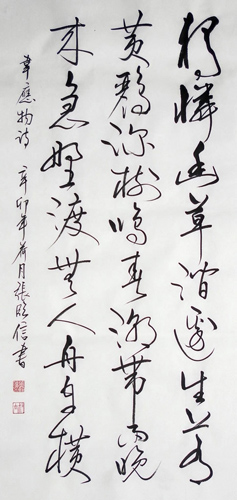 獨憐幽草澗邊生上有
黃鸝深樹鳴春潮帶雨晚
來急野渡無人舟自橫
韋應物詩 辛卯年荷月張信書